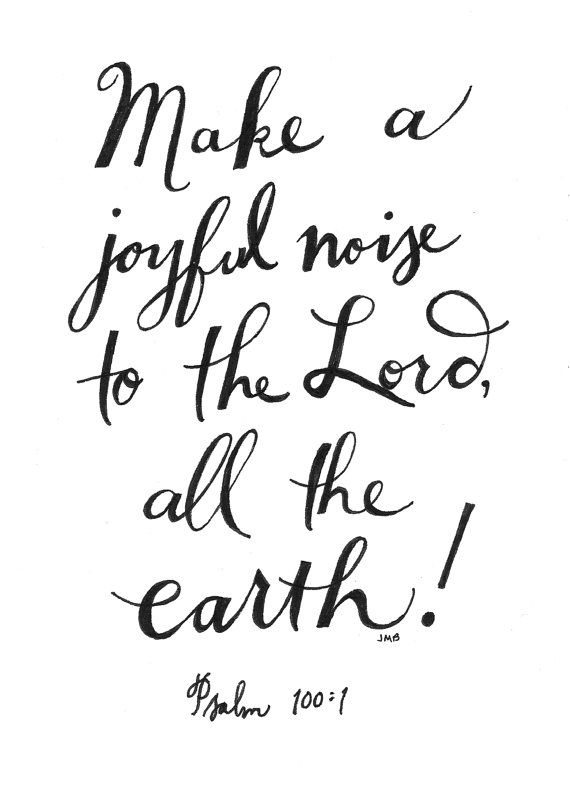 Make a
joyful noise
to the Lord,
all the
earth!
JMB
Psalm 100:1